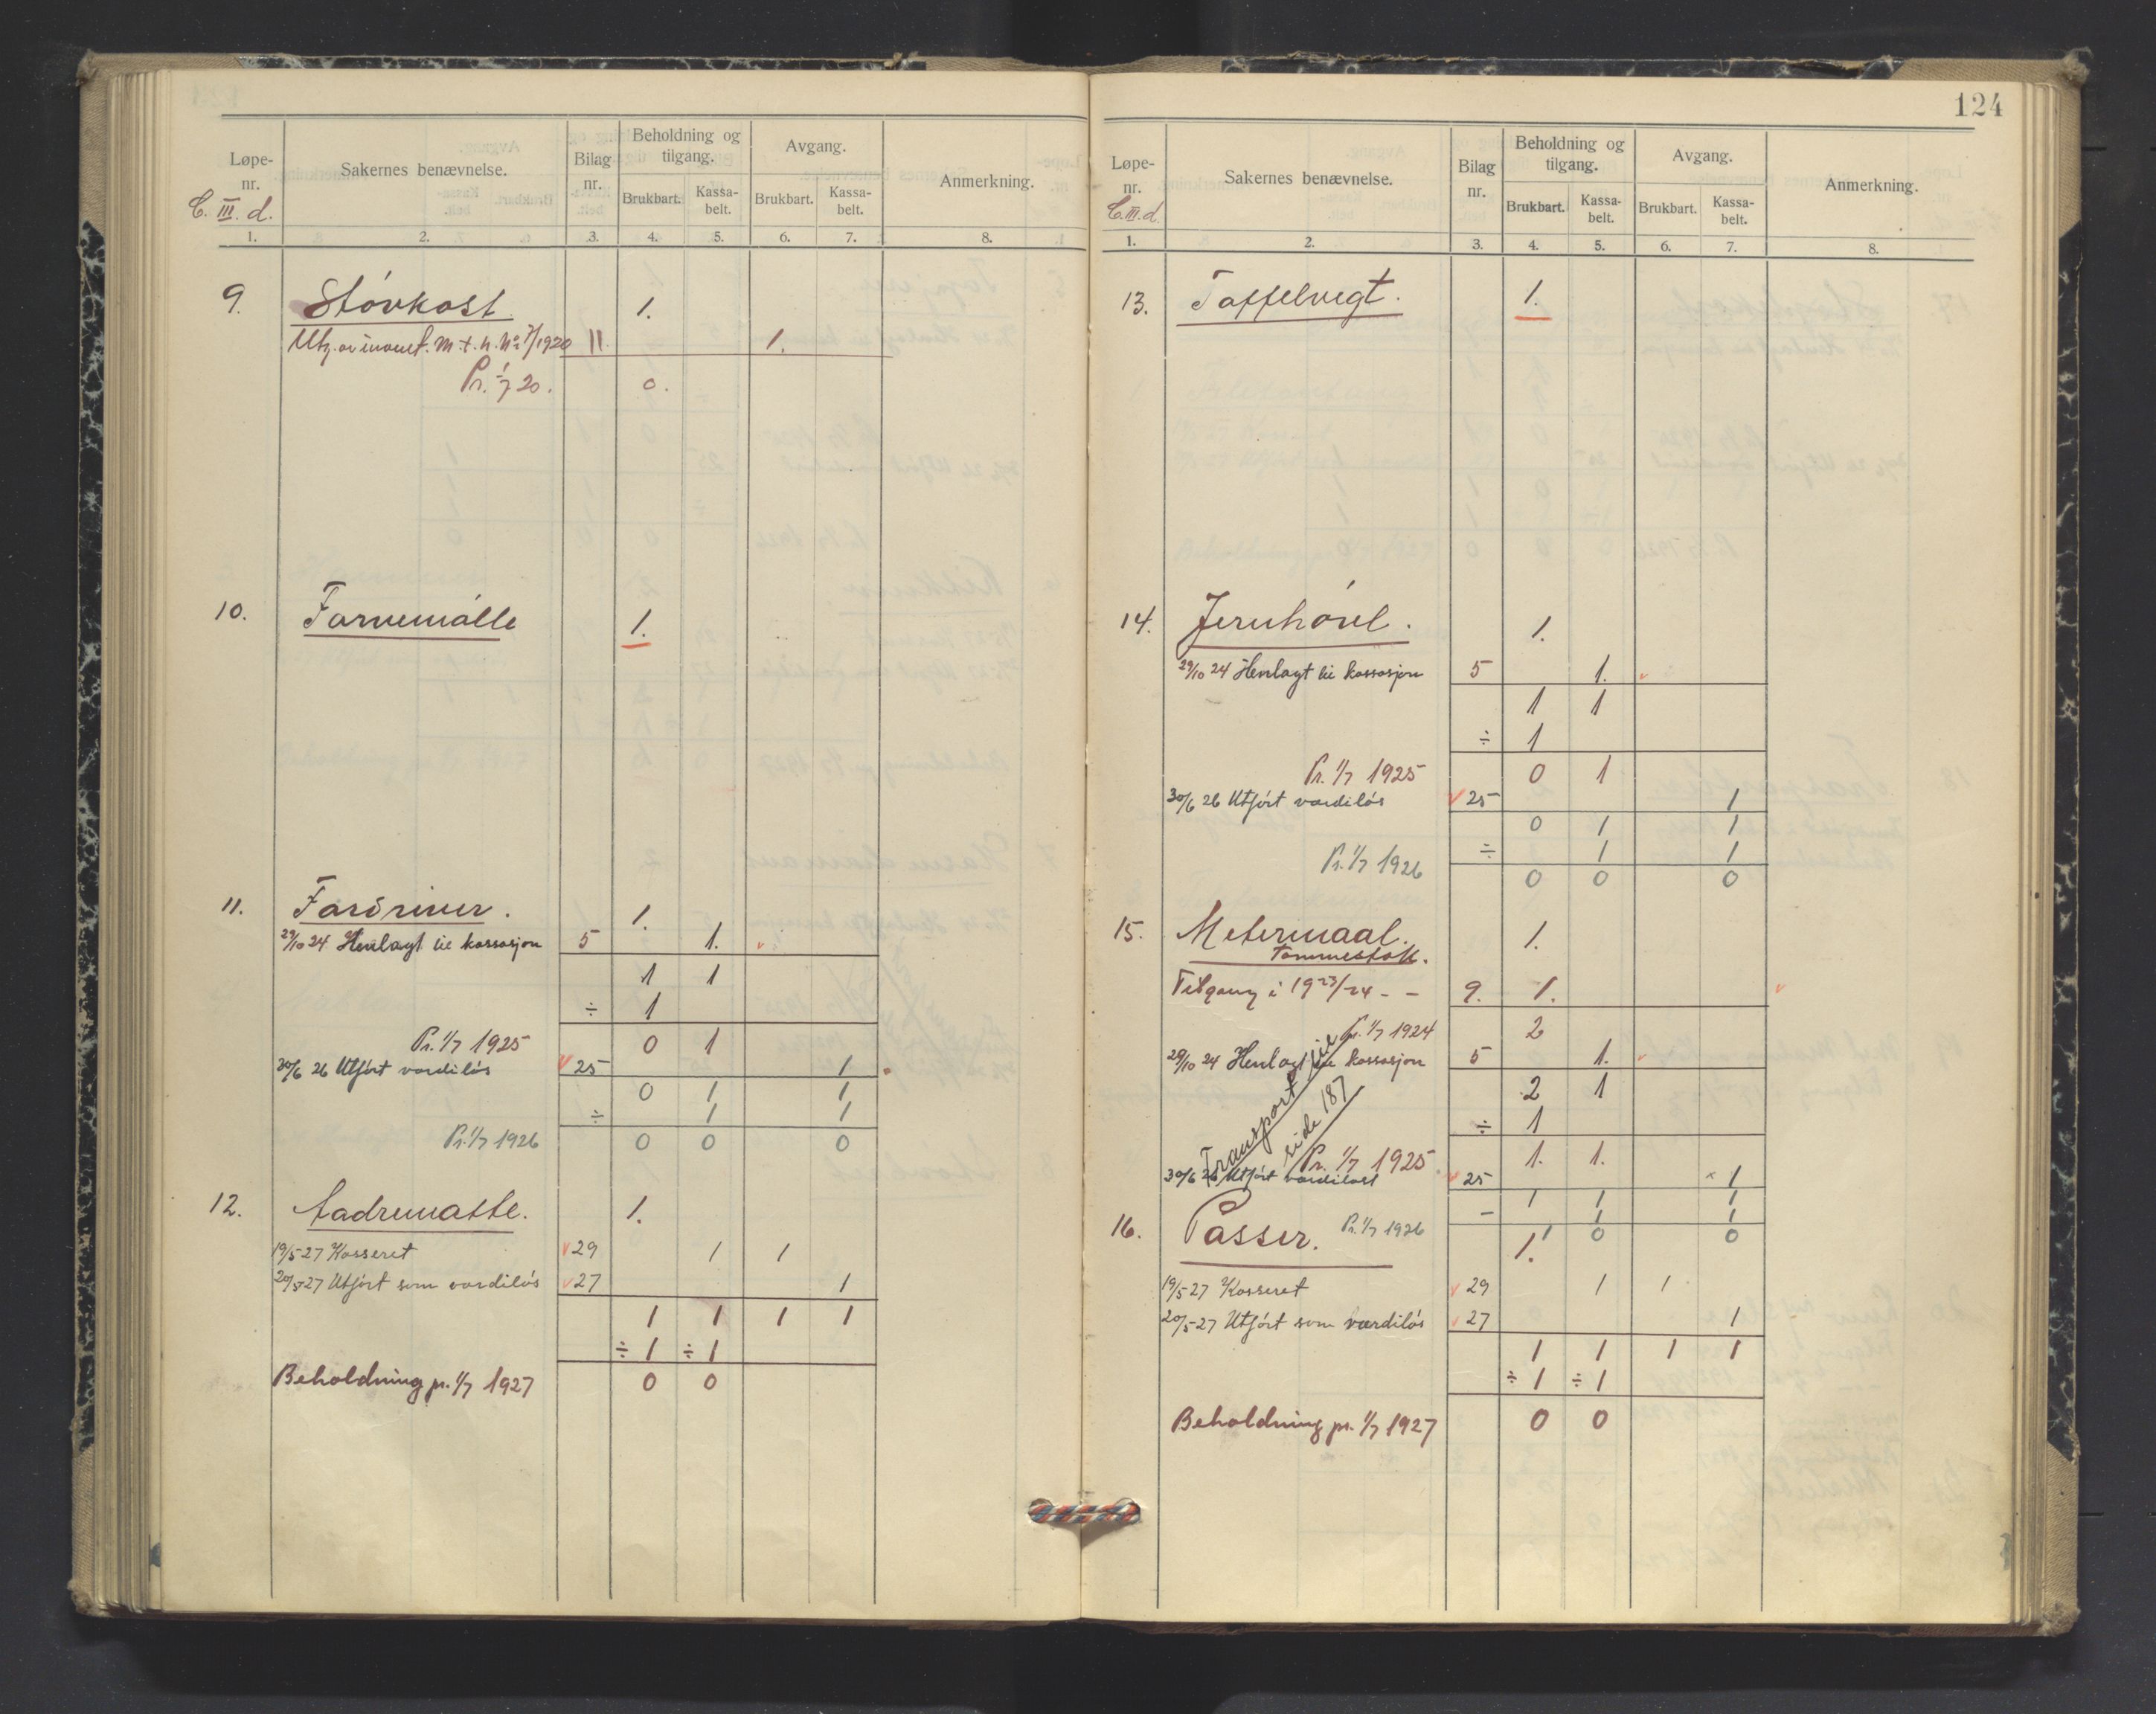 Løpe-nr. Sakernes benævnelse. Bilag nr. Beholdning og tilgang. Avgang. Anmerkning.
C. III. d. Brukbart. Kassa-belt. Brukbart. Kassa-belt.
1. 2. 3. 4. 5. 6. 7. 8.
9. Støvkost 1.
Utg. av invent. m.t.h. No 7/1920 11 1.
Pr. 1/7 20. 0.
10. Farvemølle 1.
11. Farvriver. 1.
29/10 24 Henlagt til kassasjon 5 1.
1 1
÷ 1
Pr. 1/7 1925 0 1
30/6 26 Utført værdiløs 25 1
0 1 1
÷ 1 1
Pr. 1/7 1926 0 0 0
12. 1.
19/5-27 Kasseret 29 1 1
20/5-27 Utført som værdiløs 27 1
1 1 1 1
÷ 1 ÷ 1
Beholdning pr. 1/7 1927 0 0
124
Løpe-nr. Sakernes benævnelse. Bilag nr. Beholdning og tilgang. Avgang. Anmerkning.
C. III. d. Brukbart. Kassa-belt. Brukbart. Kassa-belt.
1. 2. 3. 4. 5. 6. 7. 8.
13. Taffelvegt. 1.
14. Jernhøvl. 1.
29/10 24 Henlagt til kassasjon 5 1.
1 1
÷ 1
Pr. 1/7 1925 0 1
30/6 26 Utført værdiløs 25 1
0 1 1
÷ 1 1
Pr. 1/7 1926 0 0 0
15. Metermaal. 1.
Tommestok.
Tilgang i 1923/24 - - 9. 1.
Pr. 1/7 1924 2
29/10 24 Henlagt til kassasjon 5 1.
2 1
÷ 1
Transport til side 187
Pr. 1/7 1925 1. 1.
30/6 26 Utført værdiløst 25 × 1
1 1 1
- 1 1
Pr. 1/7 1926 1 0 0
16. Passer. 1.
19/5-27 Kasseret 29 1 1
20/5-27 Utført som værdiløs 27 1
1 1 1 1
÷ 1 ÷ 1
Beholdning pr. 1/7 1927 0 0